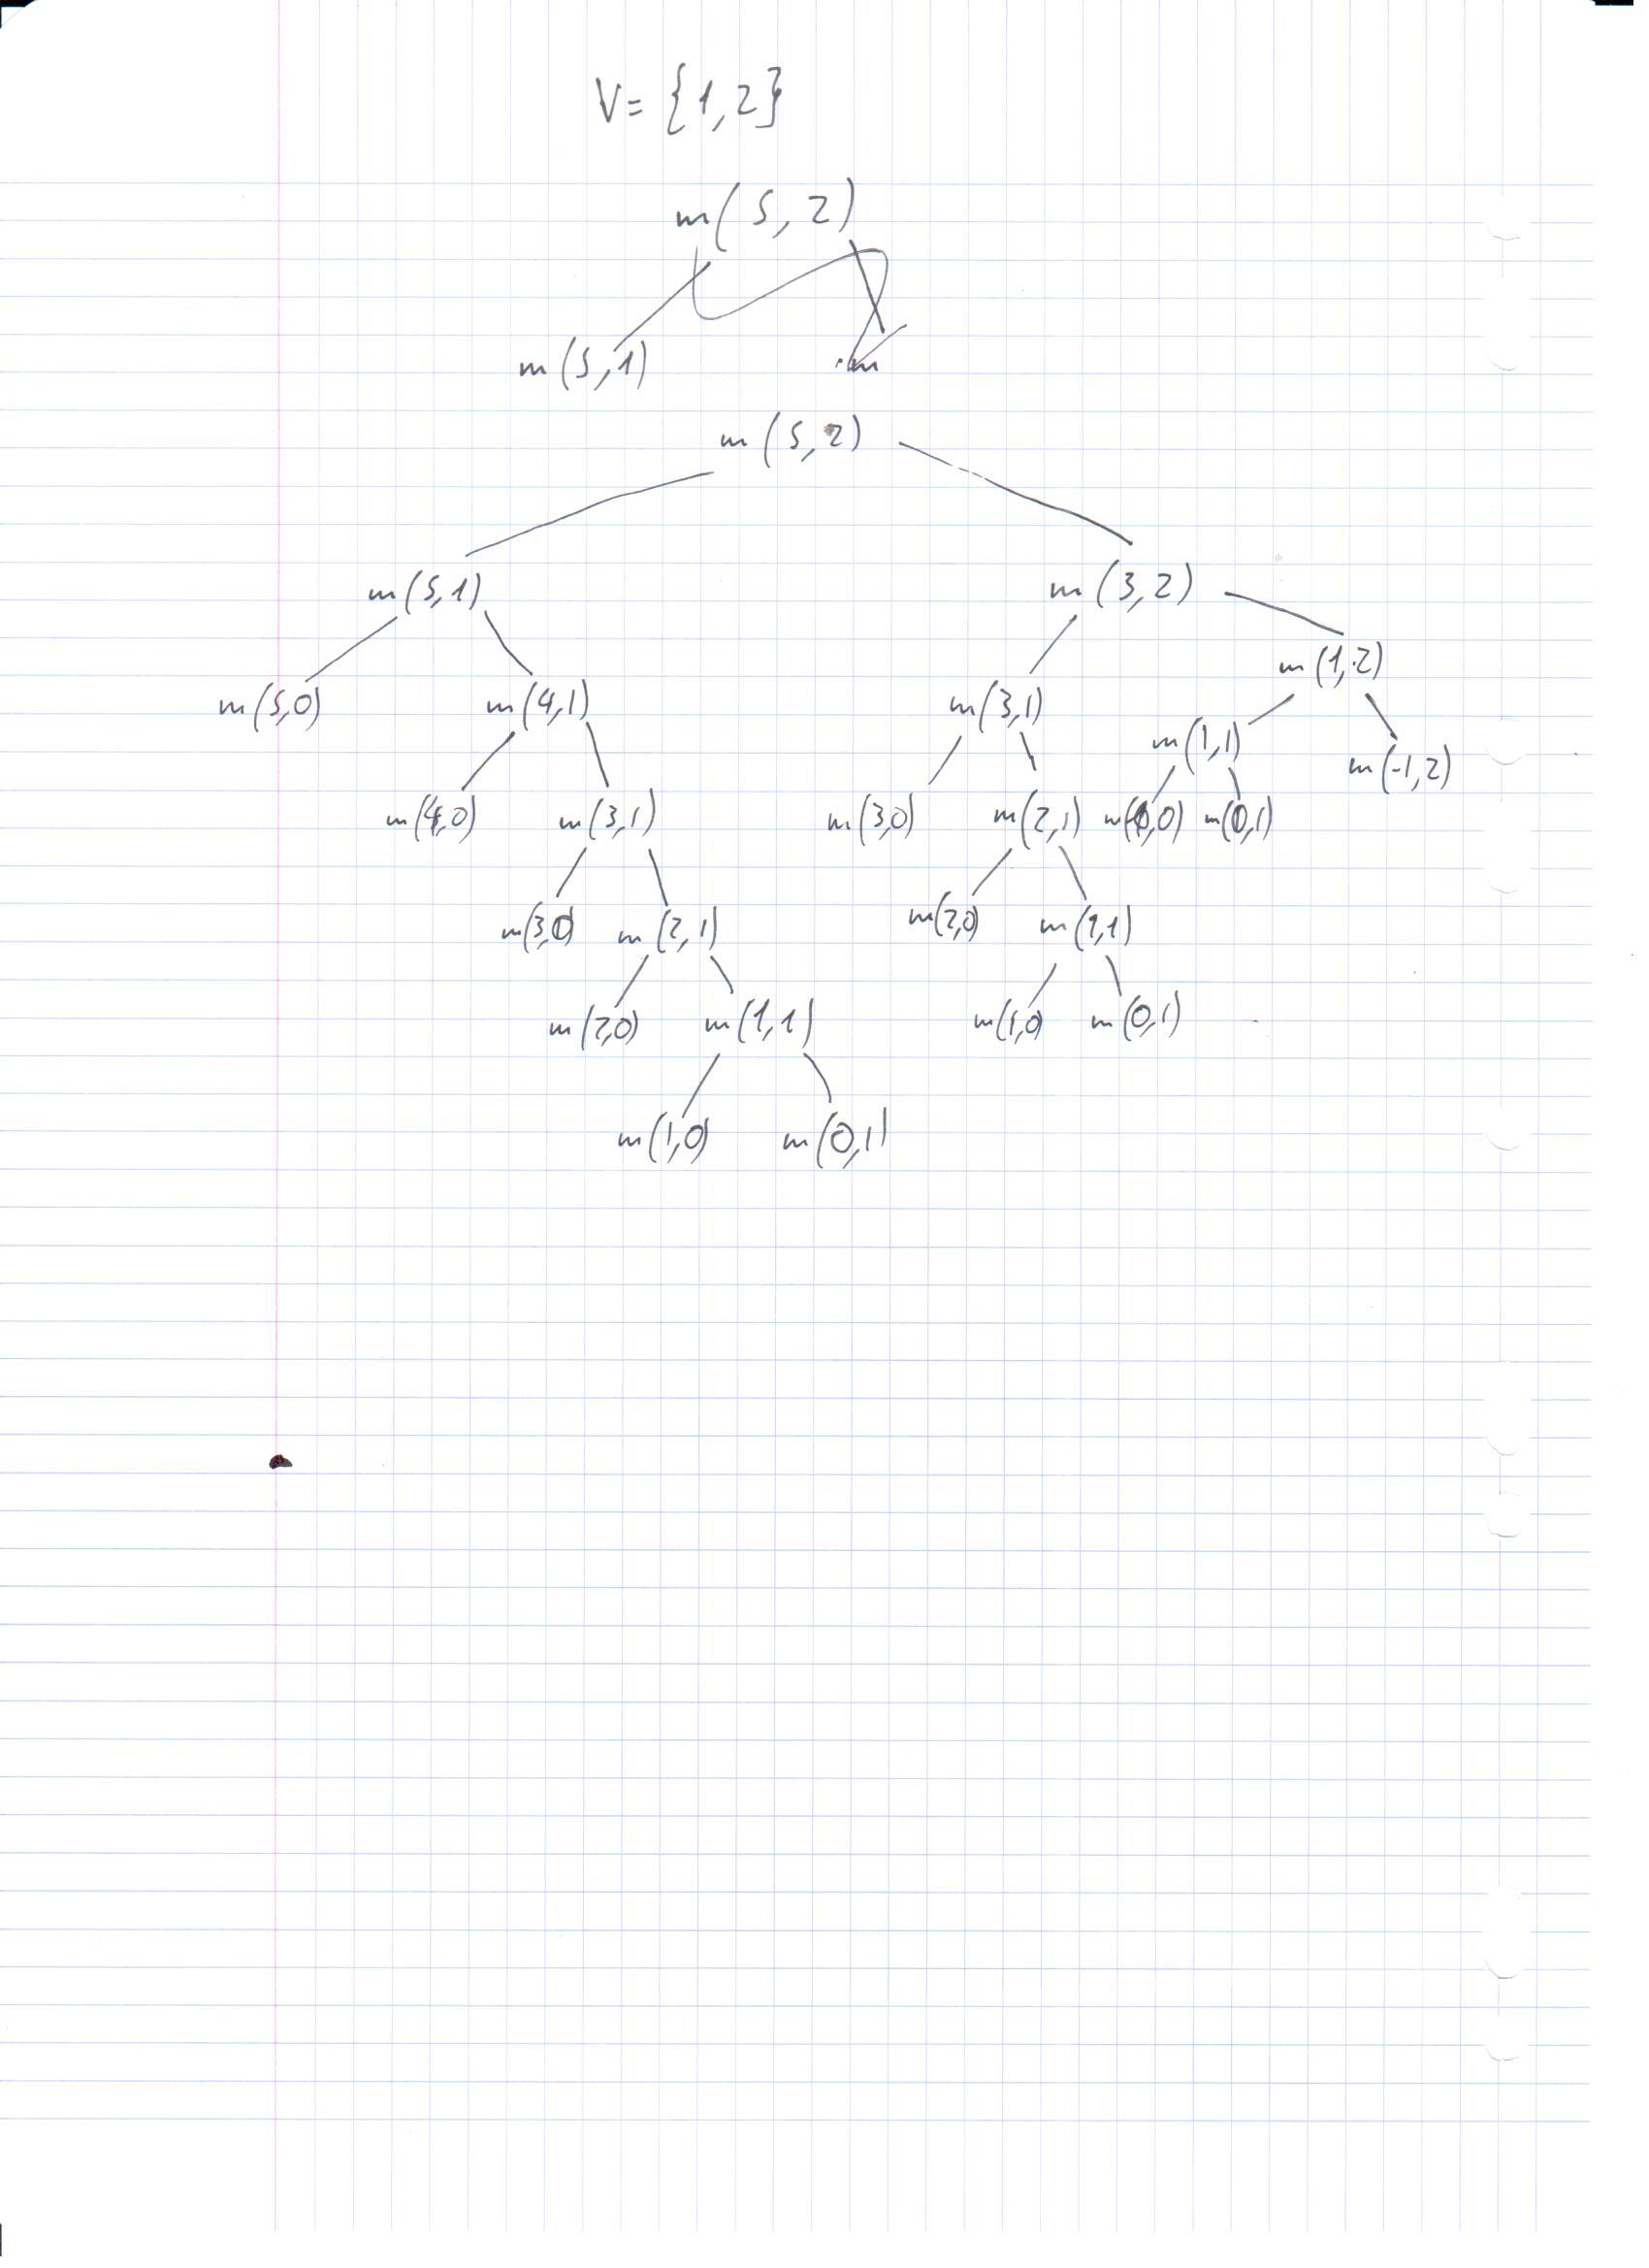 V = {1,2}
m(5,2)
m(5,1) m
m(5,2)
m(5,1) m(3,2)
m(1,2)
m(5,0) m(4,1) m(3,1) m(1,1)
m(-1,2)
m(4,0) m(3,1) m(3,0) m(2,1) m(1,0) m(0,1)
m(3,0) m(2,1) m(2,0) m(1,1)
m(2,0) m(1,1) m(1,0) m(0,1)
m(1,0) m(0,1)